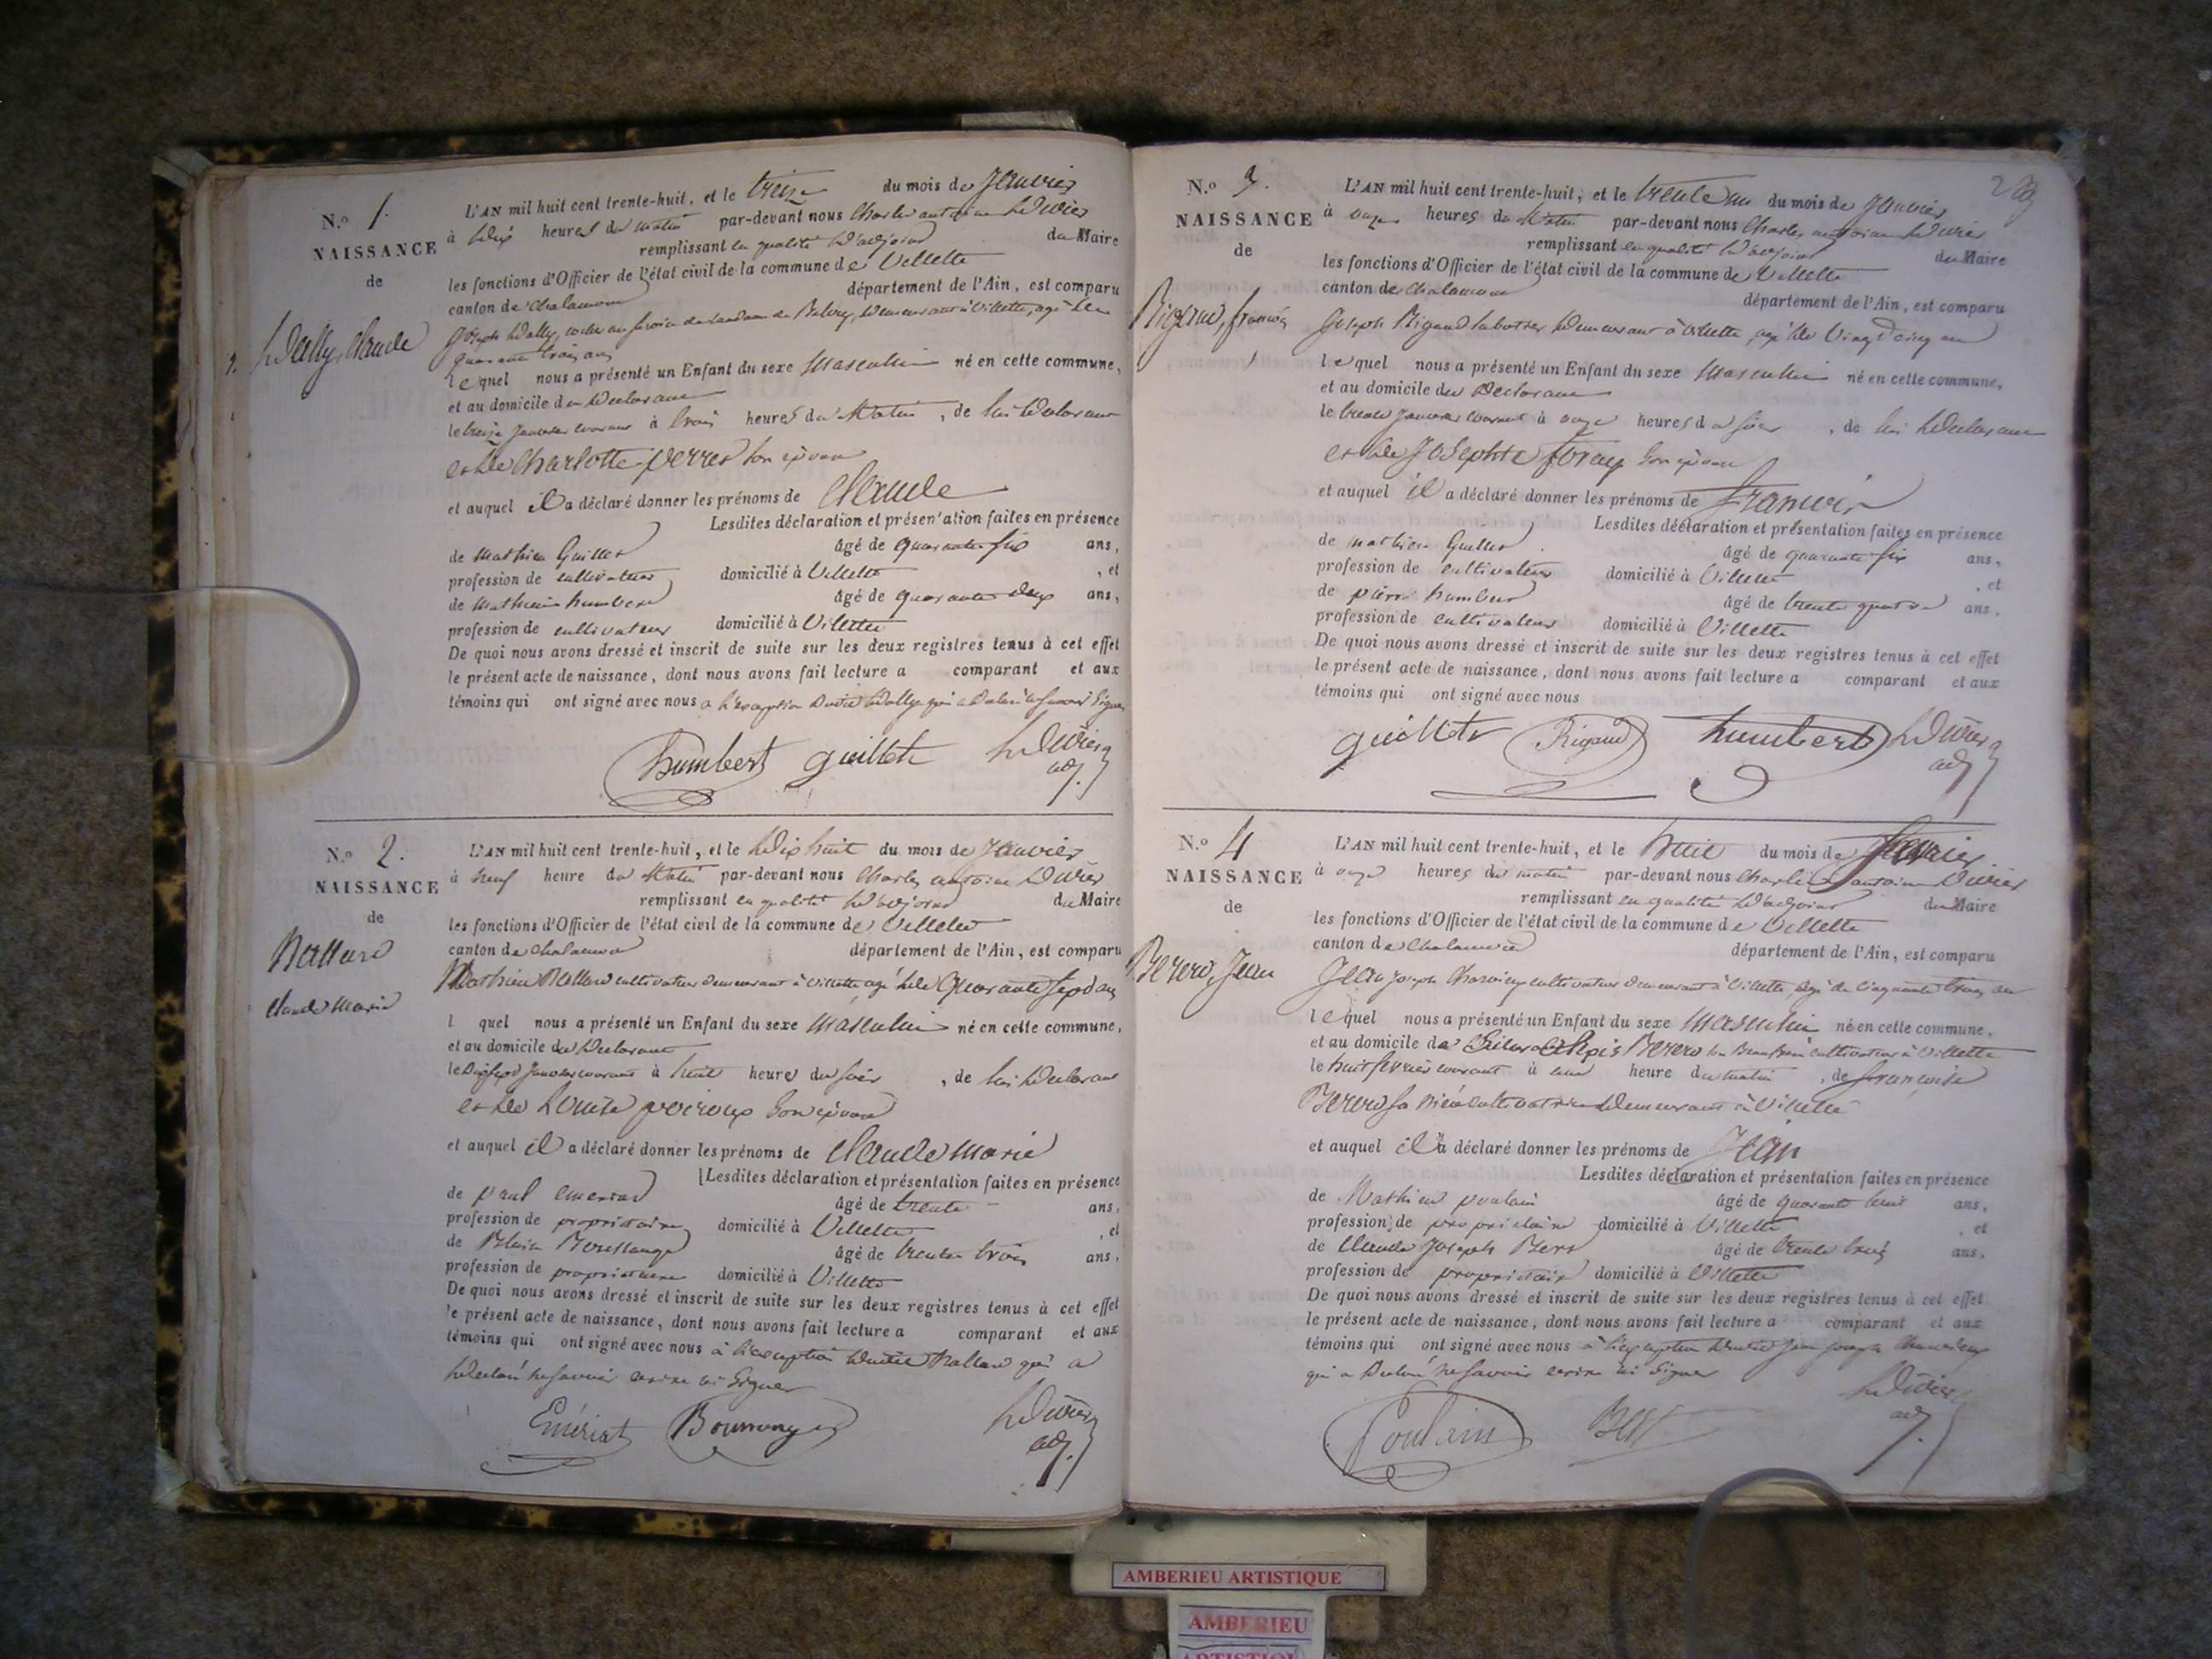 N.º 1.
NAISSANCE
de
Claude
L'AN mil huit cent trente-huit, et le treize du mois de Janvier
à dix heures du matin par-devant nous Charles antoine
remplissant en qualité d'adjoint du Maire
les fonctions d'Officier de l'état civil de la commune de Villette
canton de Chalamont département de l'Ain, est comparu
Joseph demeurant à Villette, agé de
quarante trois ans
lequel nous a présenté un Enfant du sexe Masculin né en cette commune,
et au domicile du Declarant
le treize Janvier courant à trois heures du Matin, de lui Declarant
et de Charlotte perret son epouse
et auquel il a déclaré donner les prénoms de Claude
Lesdites déclaration et présen'ation faites en présence
de Mathieu Guillet âgé de quarante six ans,
profession de cultivateur domicilié à Villette, et
de Mathieu humbert âgé de quarante deux ans,
profession de cultivateur domicilié à Villette
De quoi nous avons dressé et inscrit de suite sur les deux registres tenus à cet effet
le présent acte de naissance, dont nous avons fait lecture a comparant et aux
témoins qui ont signé avec nous a l'exception dudit qui a Declaré ne savoir Signer
humbert guillet adj.
N.º 2.
NAISSANCE
de
claude Marie
L'AN mil huit cent trente-huit, et le dix huit du mois de Janvier
à neuf heure du Matin par-devant nous Charles antoine
remplissant en qualité d'adjoint du Maire
les fonctions d'Officier de l'état civil de la commune de Villette
canton de Chalamont département de l'Ain, est comparu
Mathieu cultivateur demeurant à Villette agé de Quarante sept ans
l quel nous a présenté un Enfant du sexe Masculin né en cette commune,
et au domicile du Declarant
le dix sept Janvier courant à huit heure du soir, de lui Declarant
et de Louise poiroux son epouse
et auquel il a déclaré donner les prénoms de Claude Marie
Lesdites déclaration et présentation faites en présence
de paul emeriat âgé de trente ans,
profession de propriétaire domicilié à Villette, et
de âgé de trente trois ans,
profession de propriétaire domicilié à Villette
De quoi nous avons dressé et inscrit de suite sur les deux registres tenus à cet effet
le présent acte de naissance, dont nous avons fait lecture a comparant et aux
témoins qui ont signé avec nous à l'exception dudit qui a
Declaré ne savoir ecrire ni Signer
Emériat adj.
N.º 3.
NAISSANCE
de
Rigaud, francois
L'AN mil huit cent trente-huit, et le trente un du mois de Janvier
à onze heures du Matin par-devant nous Charles antoine
remplissant en qualité d'adjoint du Maire
les fonctions d'Officier de l'état civil de la commune de Villette
canton de Chalamont
département de l'Ain, est comparu
Joseph Rigaud demeurant à Villette, agé de Vingt cinq ans
lequel nous a présenté un Enfant du sexe Masculin né en cette commune,
et au domicile du Declarant
le trente Janvier courant à onze heures du soir, de lui Declarant
et de Josephte son epouse
et auquel il a déclaré donner les prénoms de francois
Lesdites déclaration et présentation faites en présence
de Mathieu Guillet âgé de quarante six ans,
profession de cultivateur domicilié à Villette, et
de pierre humbert âgé de trente quatre ans,
profession de cultivateur domicilié à Villette
De quoi nous avons dressé et inscrit de suite sur les deux registres tenus à cet effet
le présent acte de naissance, dont nous avons fait lecture a comparant et aux
témoins qui ont signé avec nous
guillet Rigaud humbert adj
N.º 4
NAISSANCE
de
Jean
L'AN mil huit cent trente-huit, et le huit du mois de fevrier
à onze heures du matin par-devant nous Charles antoine
remplissant en qualité d'adjoint du Maire
les fonctions d'Officier de l'état civil de la commune de Villette
canton de Chalamont
département de l'Ain, est comparu
Jean Joseph cultivateur demeurant à Villette, agé de cinquante trois ans
lequel nous a présenté un Enfant du sexe Masculin né en cette commune.
et au domicile de son Beau frère cultivateur à Villette
le huit fevrier courant à une heure du matin, de francoise
sa nièce cultivatrice demeurant à Villette
et auquel il a déclaré donner les prénoms de Jean
Lesdites déclaration et présentation faites en présence
de Mathieu poulain âgé de quarante huit ans,
profession de propriétaire domicilié à Villette, et
de Claude Joseph âgé de trente trois ans,
profession de propriétaire domicilié à Villette
De quoi nous avons dressé et inscrit de suite sur les deux registres tenus à cet effet
le présent acte de naissance, dont nous avons fait lecture a comparant et aux
témoins qui ont signé avec nous à l'exception dudit Jean Joseph
qui a Declaré ne savoir ecrire ni Signer
Poulain adj.
AMBERIEU ARTISTIQUE
AMBERIEU
ARTISTIQUE